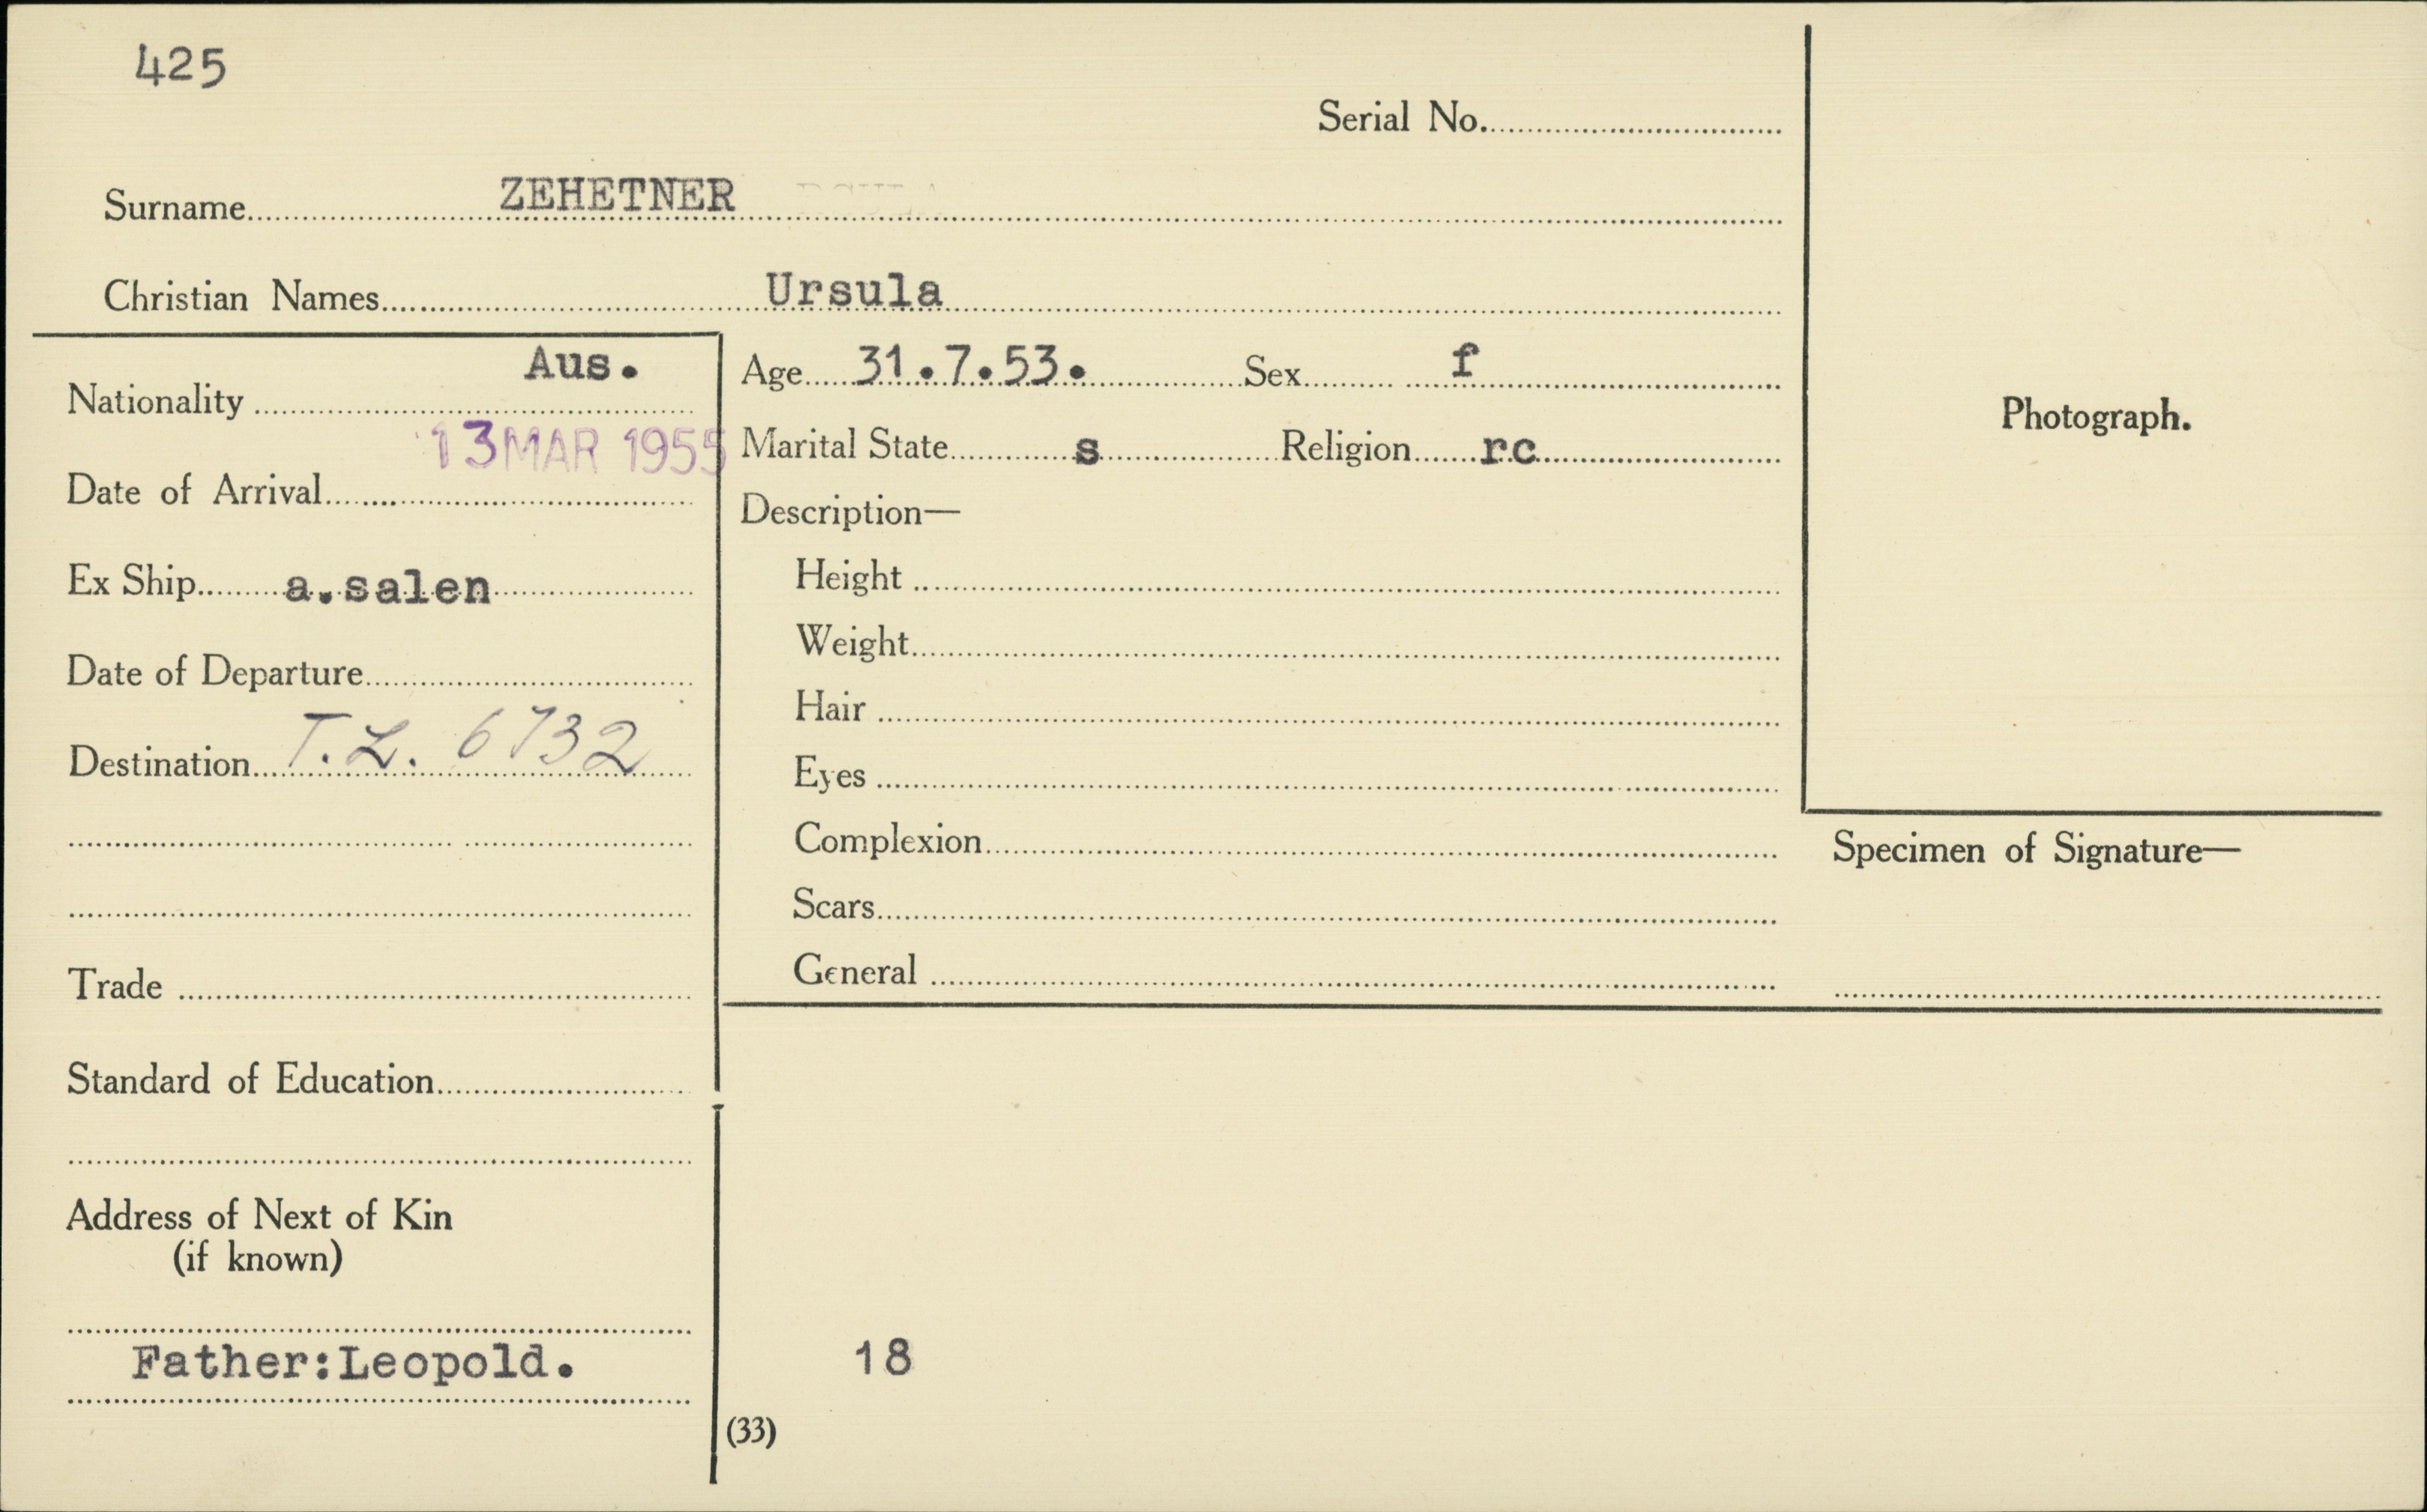 425
Serial No.
Surname ZEHETNER
Christian Names Ursula
Nationality Aus.
Date of Arrival 13 MAR 1955
Ex Ship a.salen
Date of Departure
Destination T.L. 6732
Trade
Standard of Education
Address of Next of Kin
(if known)
Father:Leopold.
Age 31.7.53. Sex f
Marital State s Religion rc
Description—
Height
Weight
Hair
Eyes
Complexion
Scars
General
Photograph.
Specimen of Signature—
18
(33)